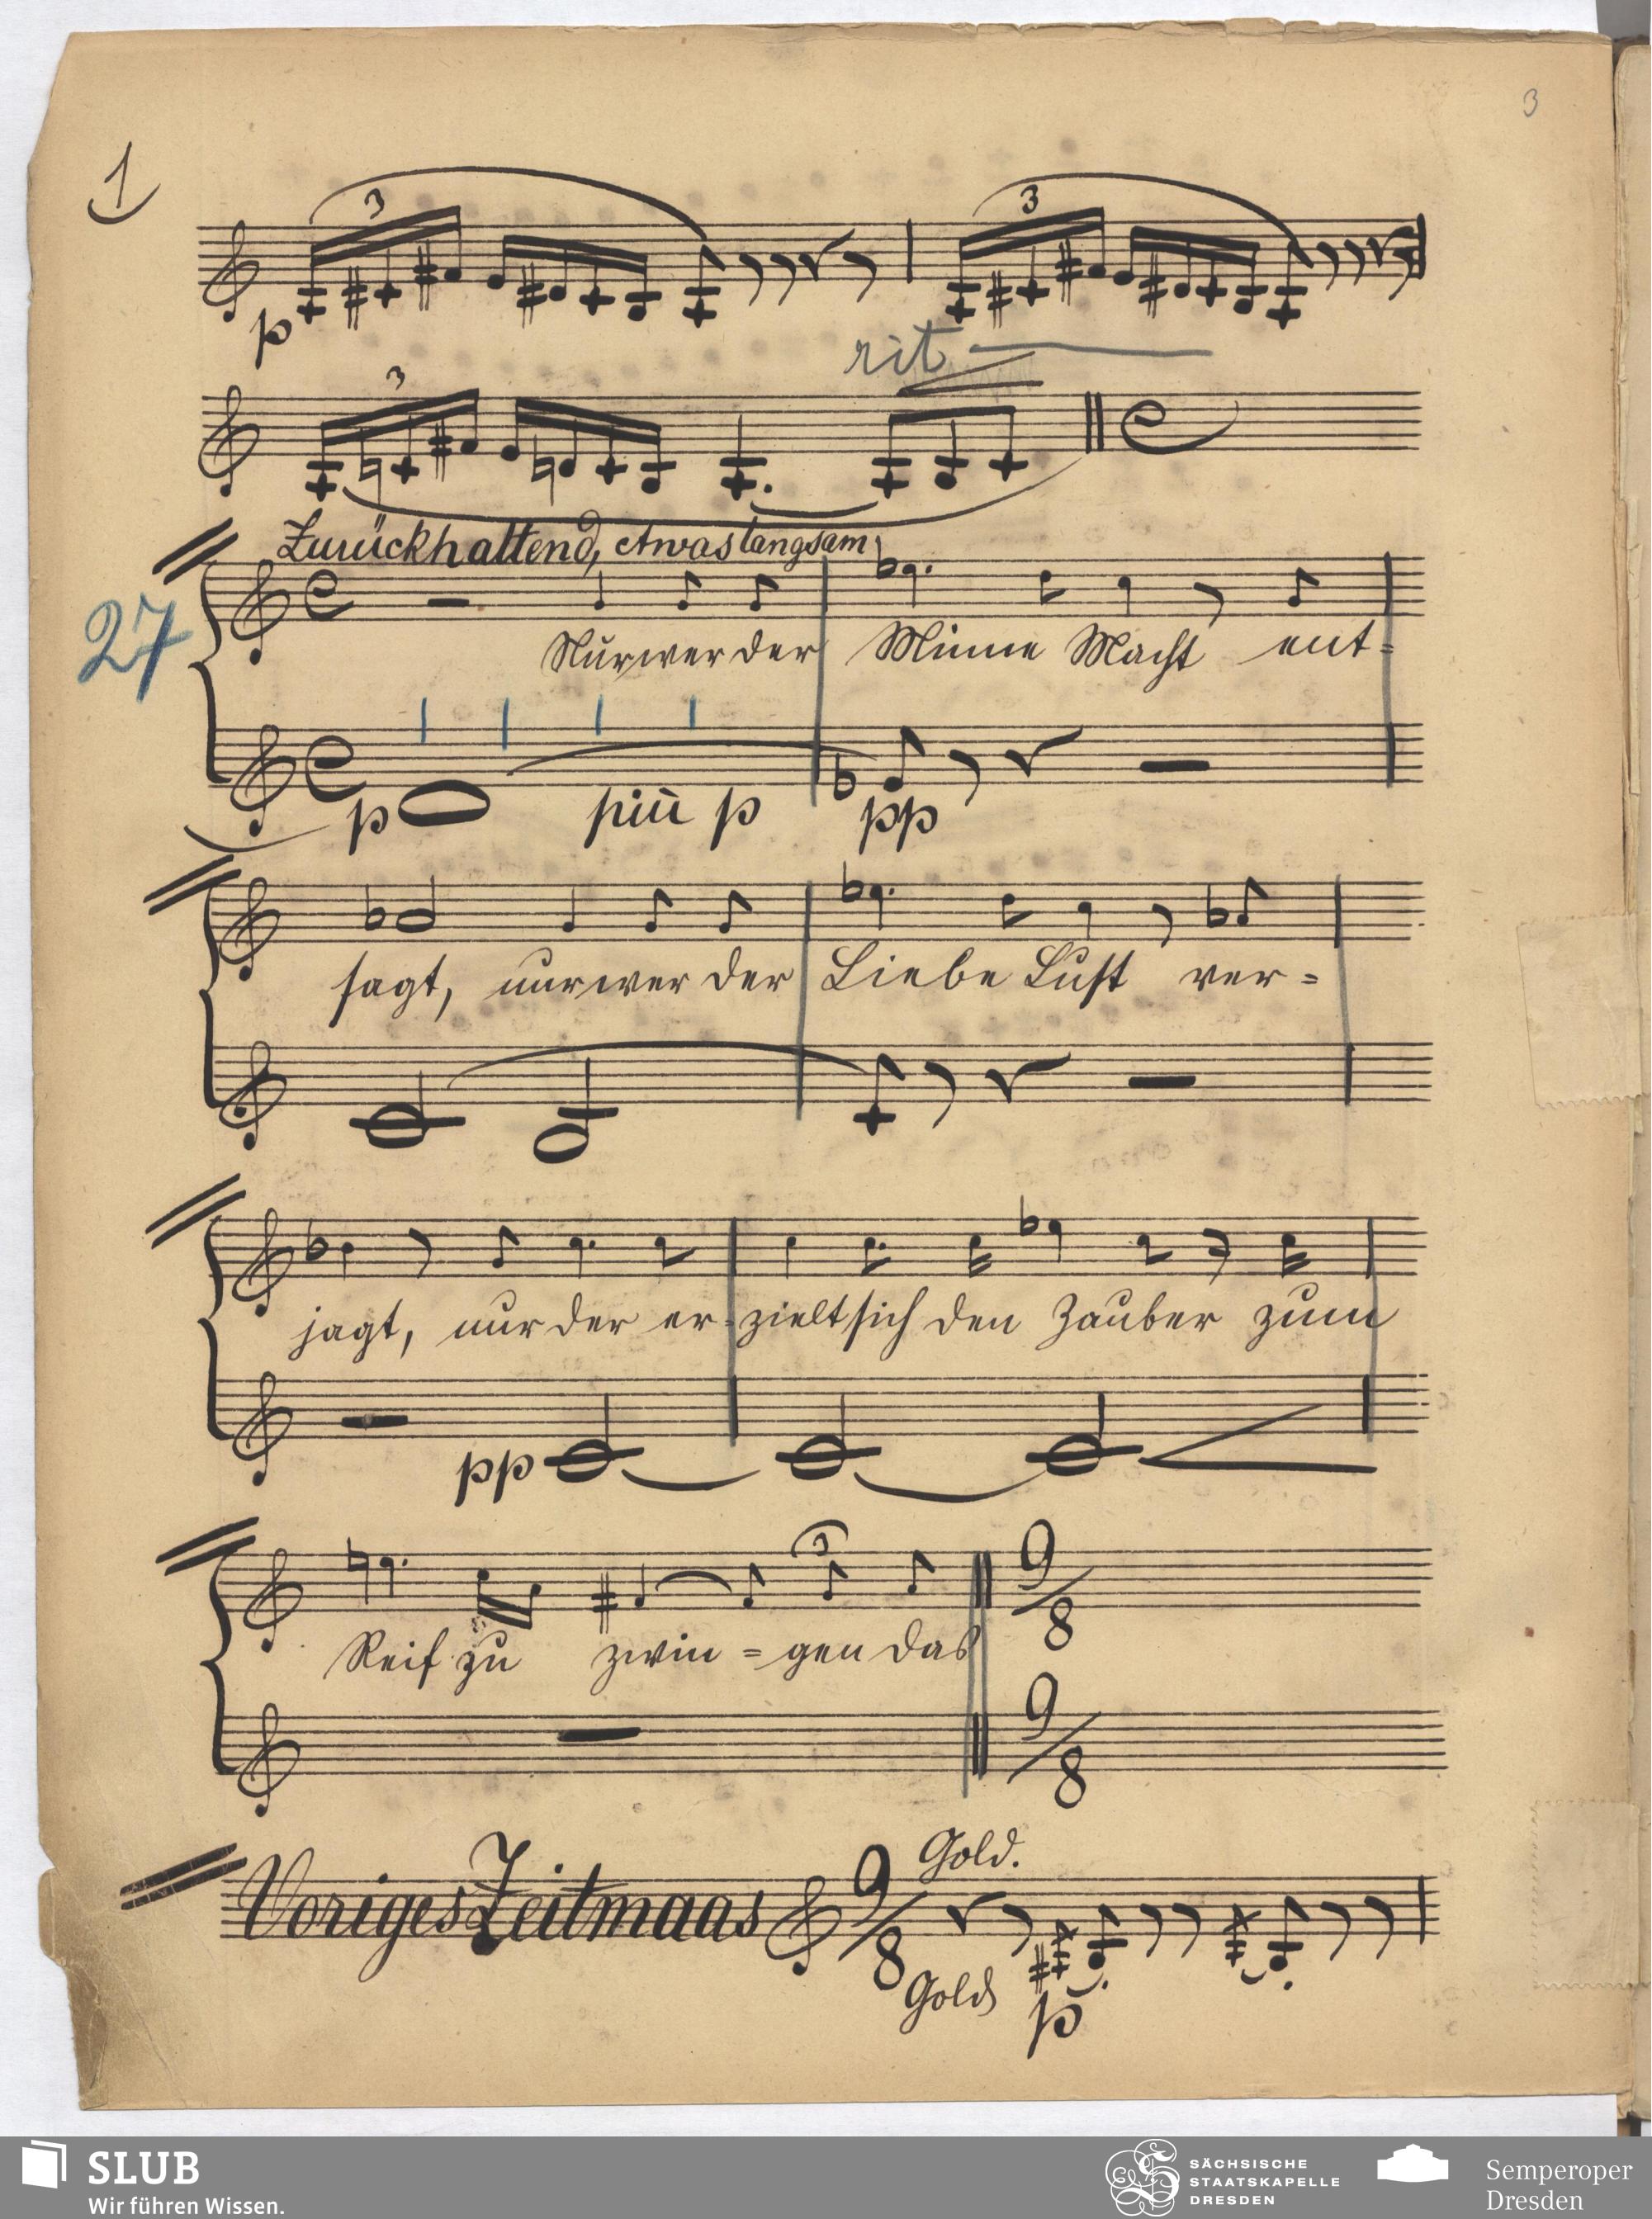 3
1
3
3
p
rit
3
Zurückhaltend, etwas langsam
27
Nur wer der Minne Macht ent=
p più p pp
sagt, nur wer der Liebe Lust ver=
jagt, nur der er-zielt sich den Zauber zum
pp
3
9/8
Reif zu zwin = gen das
9/8
Gold.
Voriges Zeitmaas 9/8
Gold
p
SLUB
Wir führen Wissen.
SÄCHSISCHE
STAATSKAPELLE
DRESDEN
Semperoper
Dresden